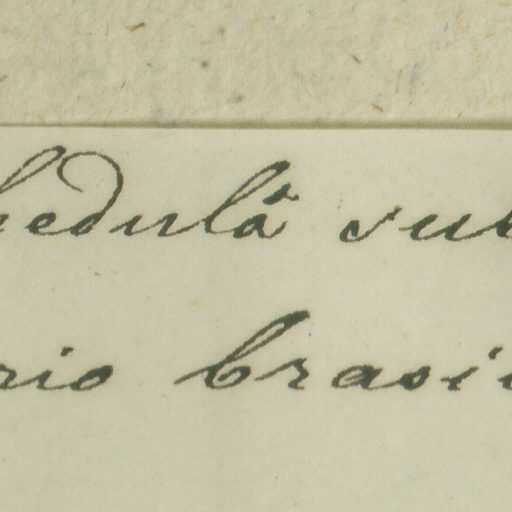 hedulâ sub
rio brasi